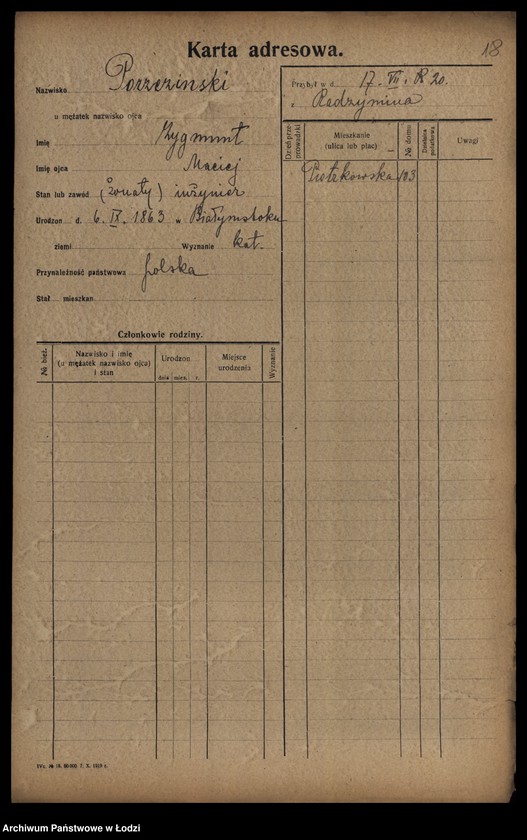 Karta adresowa.
18
Nazwisko Porzeziński
u mężatek nazwisko ojca
Imię Zygmunt
Imię ojca Maciej
Stan lub zawód (żonaty) inżynier
Urodzon d. 6. IX. 1863 w Białymstoku
ziemi Wyznanie kat.
Przynależność państwowa polska
Stał mieszkan.
Członkowie rodziny.
№ bież.
Nazwisko i imię
(u mężatek nazwisko ojca)
i stan
Urodzon
dnia mies. r.
Miejsce
urodzenia
Wyznanie
Przybył w d. 17. VII. 20.
z Radzymina
Dzień prze-
prowadzki
Mieszkanie
(ulica lub plac)
№ domu
Dzielnica
policyjna
Uwagi
Piotrkowska 103
7. X. 1919 r.
Archiwum Państwowe w Łodzi